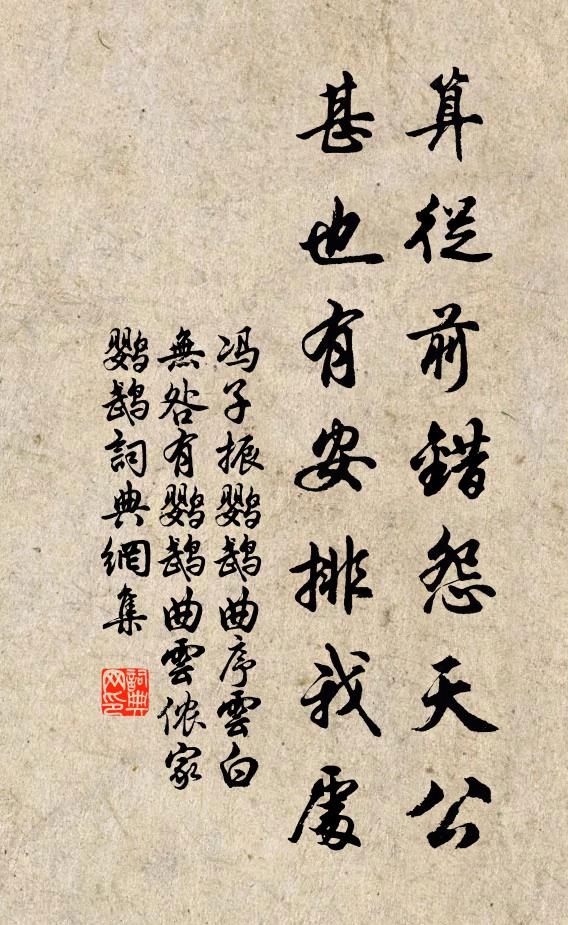 算從前錯怨天公
甚也有安排我處
冯子振鸚鵡曲序雲白
無咎有鸚鵡曲雲侬家
鸚鵡詞典網集
詞典網印